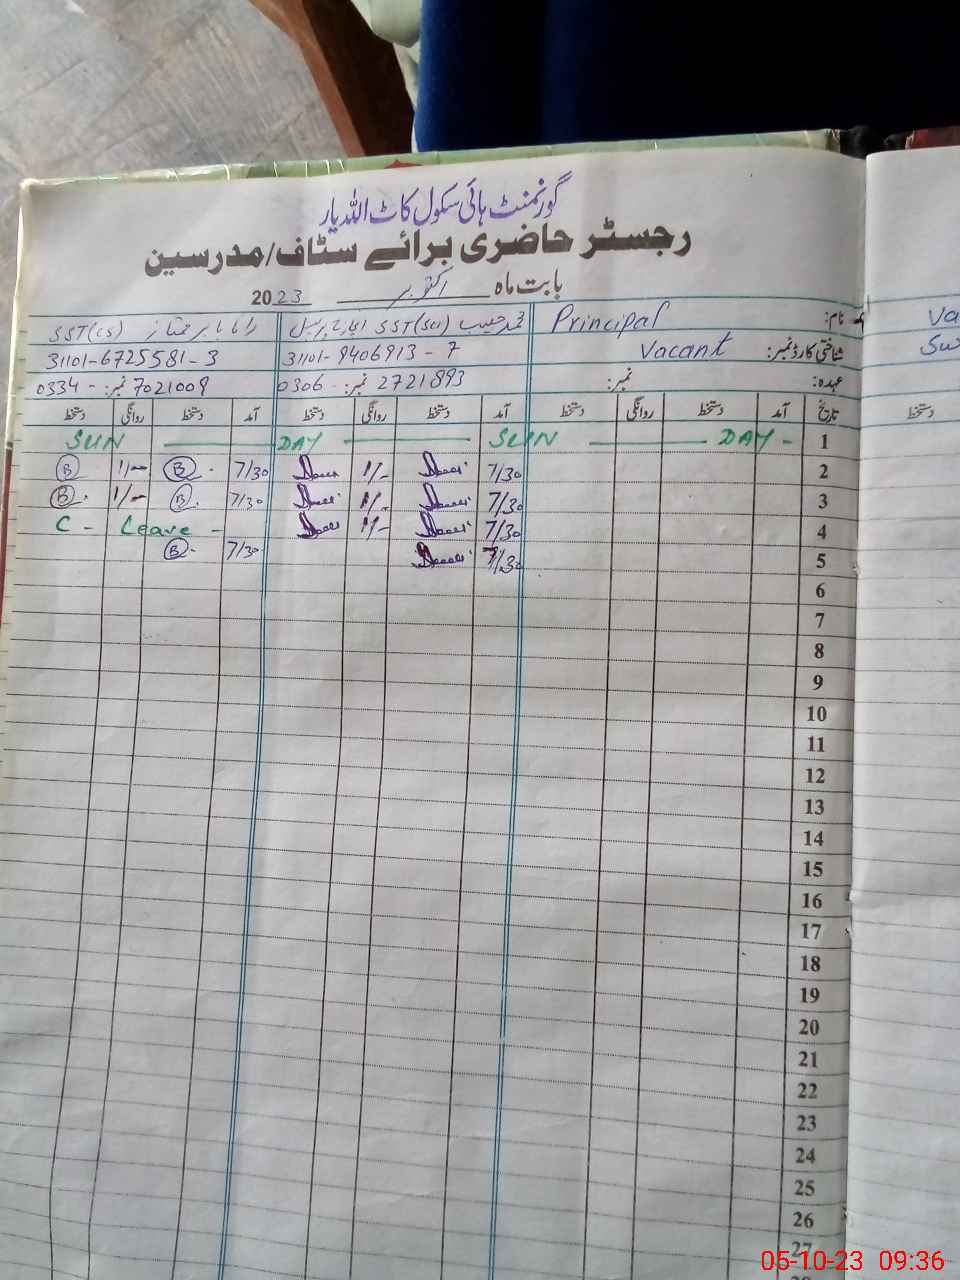 گورنمنٹ ہائی سکول کاٹ اللہ یار
رجسٹر حاضری برائے سٹاف/مدرسین
بابت ماہ اکتوبر 2023
نام: Principal محمد حبیب SST(Sci) انچارج پرنسپل رانا بابر ممتاز SST(CS)
شناختی کارڈ نمبر: Vacant 31101-9406913-7 31101-6725581-3
عہدہ: نمبر: 0306 - نمبر: 2721893 0334 - نمبر: 7021009
تاریخ آمد دستخط روانگی دستخط آمد دستخط روانگی دستخط آمد دستخط روانگی دستخط
1 SUN DAY SUN DAY
2 7/30 1/- 7/30 B 1/- B
3 7/30 1/- 7/30 B 1/- B
4 7/30 1/- C - Leave -
5 7/30 7/30 B
6
7
8
9
10
11
12
13
14
15
16
17
18
19
20
21
22
23
24
25
26
27
Va
دستخط
05-10-23 09:36